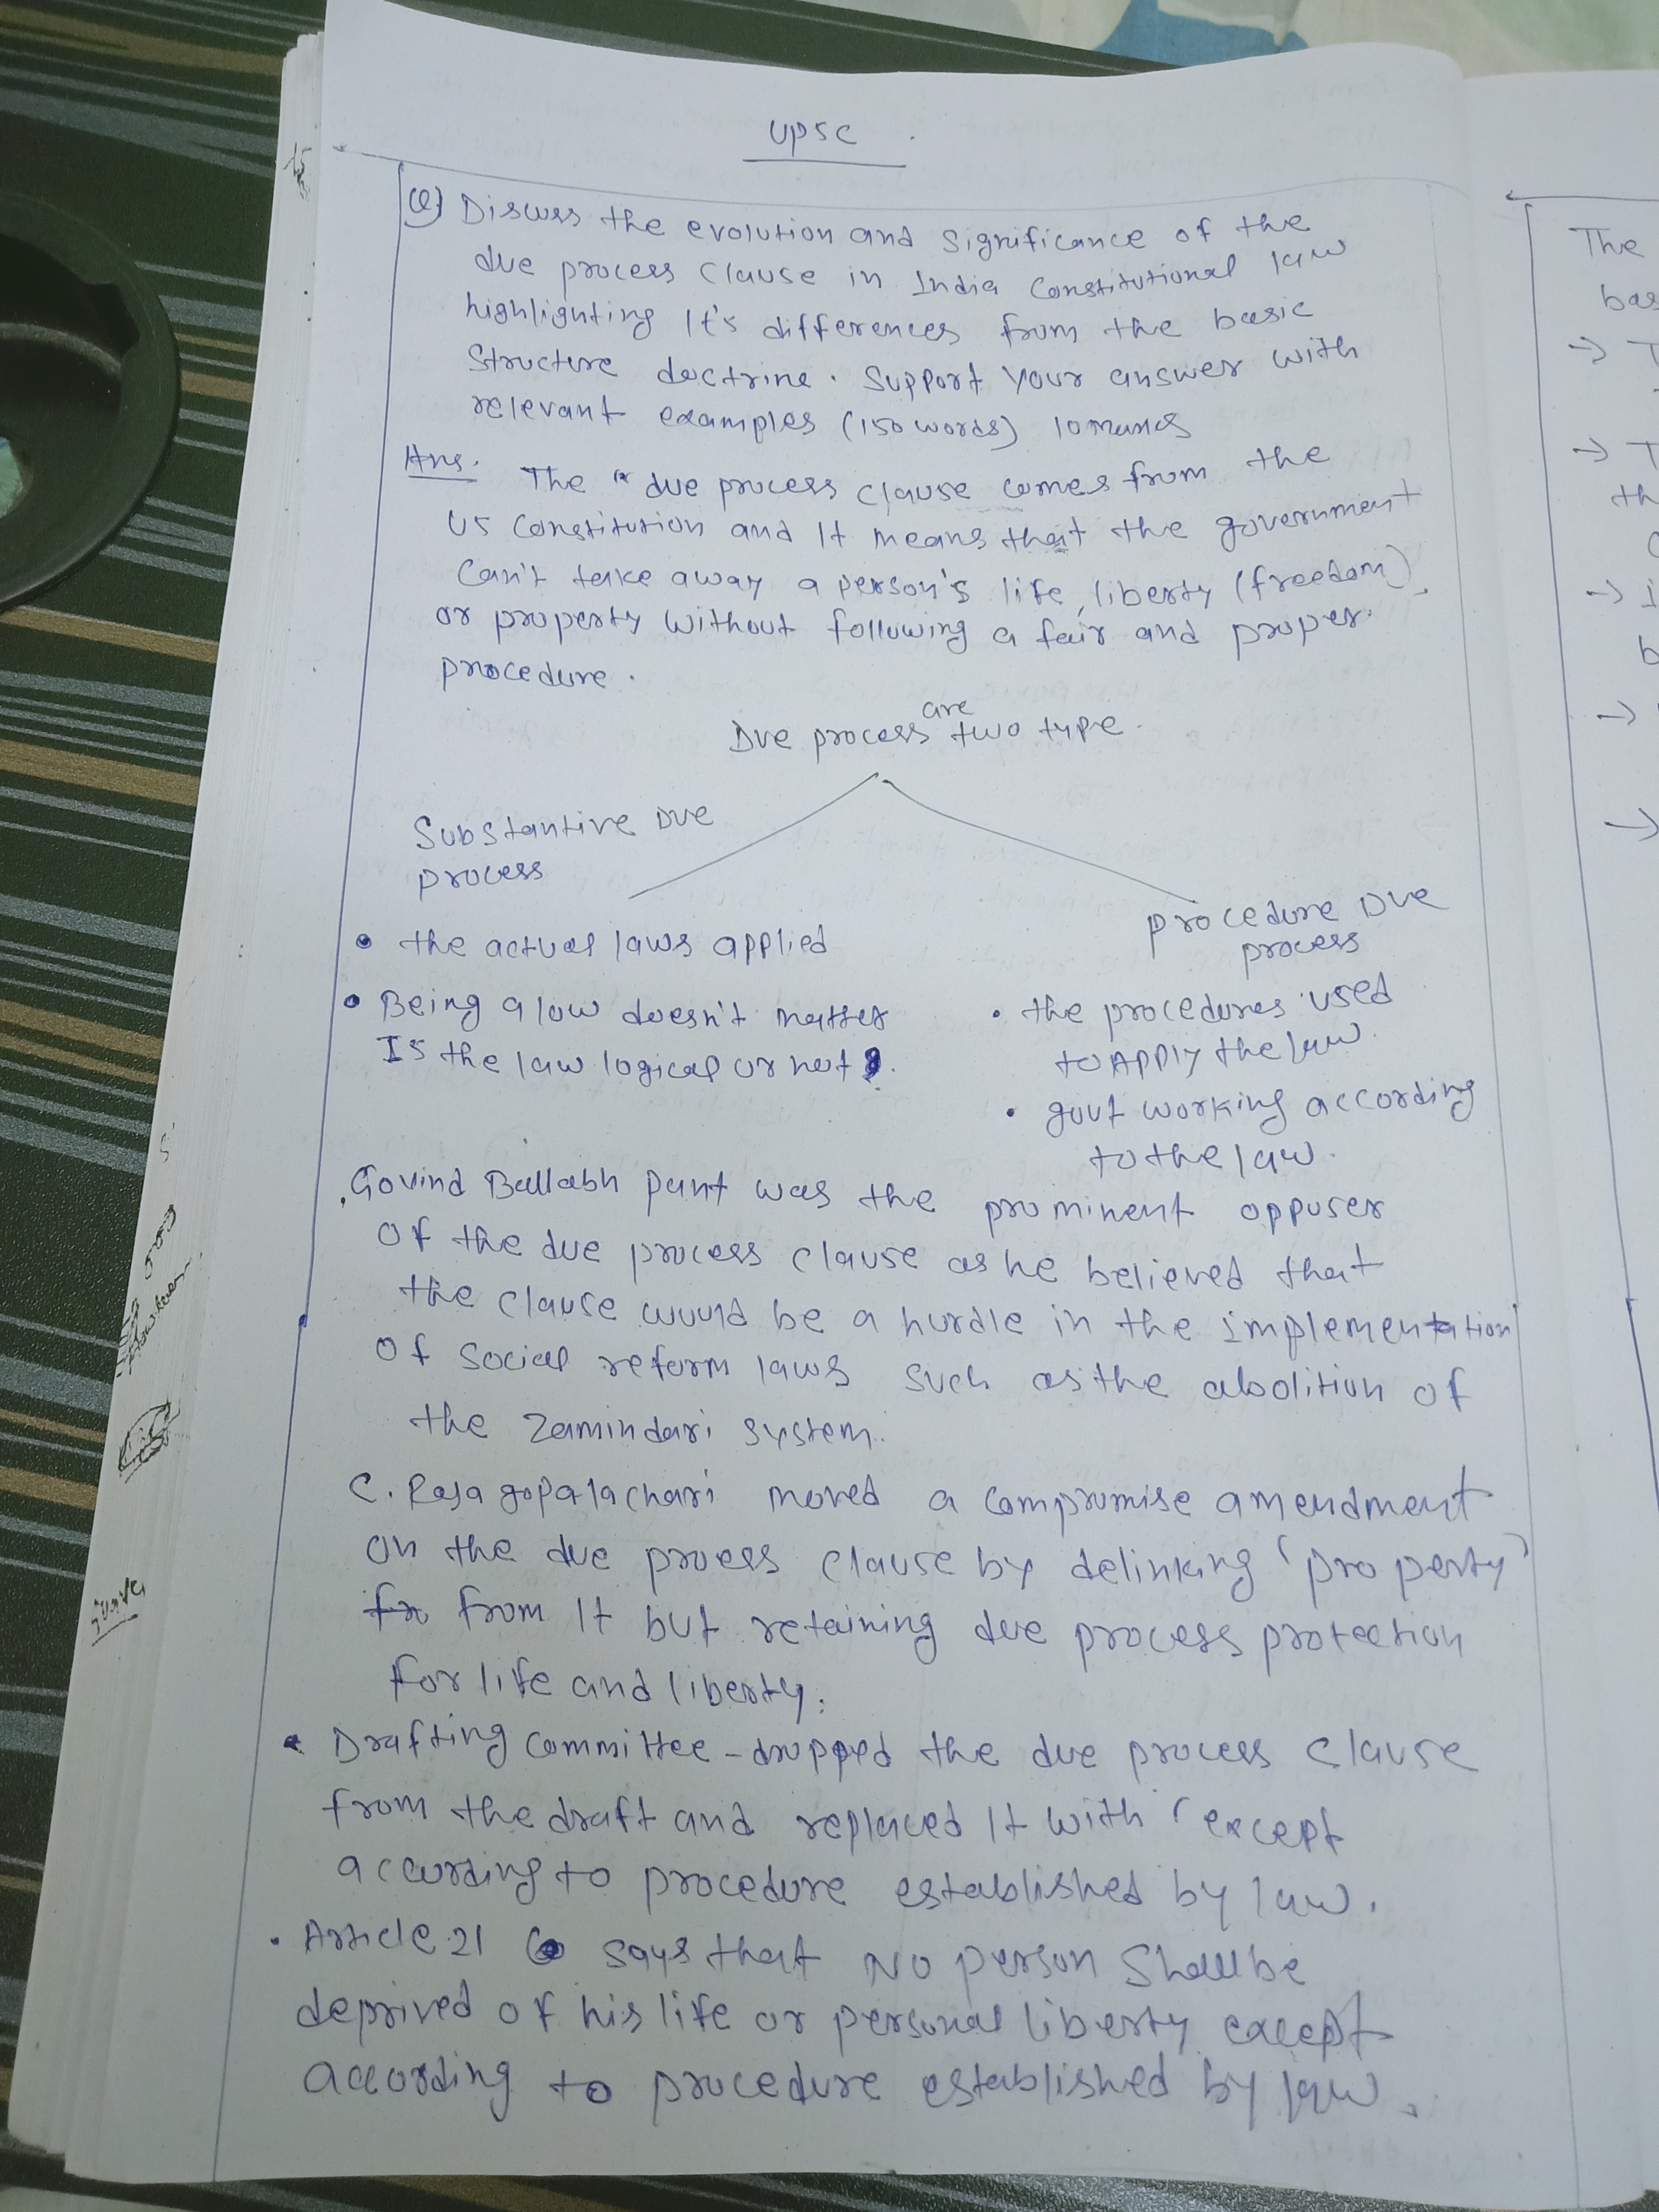 UPSC
Q) Discuss the evolution and significance of the
due process clause in India Constitutional law
highlighting It's differences from the basic
structure doctrine. Support your answer with
relevant examples (150 words) 10 marks
Ans. The " due process clause comes from the
US Constitution and It means that the government
Can't take away a person's life, liberty (freedom),
or property without following a fair and proper.
procedure.
Due process are two type.
Substantive Due
process
• the actual laws applied
• Being a law doesn't matter
Is the law logical or not?.
procedure Due
process
• the procedures used
to Apply the law.
• govt working according
to the law.
. Govind Ballabh pant was the prominent opposer
Of the due process clause as he believed that
the clause would be a hurdle in the implementation
Of social reform laws such as the abolition of
the Zamindari system.
C. Rajagopalachari moved a compromise amendment
on the due process clause by delinking 'property'
from It but retaining due process protection
for life and liberty.
• Drafting Committee - dropped the due process clause
from the draft and replaced It with ' except
according to procedure established by law.
• Article 21 says that No person Shall be
deprived of his life or personal liberty except
according to procedure established by law.
The
bas
→ T
→ T
th
→ i
b
→
→